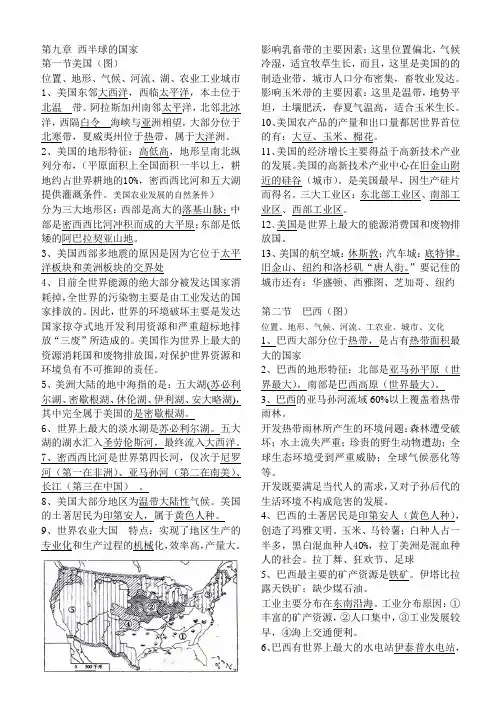 第九章 西半球的国家
第一节美国（图）
位置、地形、气候、河流、湖、农业工业城市
1、美国东邻大西洋，西临太平洋，本土位于
北温 带。阿拉斯加州南邻太平洋，北邻北冰
洋，西隔白令 海峡与亚洲相望，大部分位于
北寒带，夏威夷州位于热带，属于大洋洲。
2、美国的地形特征：高低高，地形呈南北纵
列分布，（平原面积上全国面积一半以上，耕
地约占世界耕地的10%，密西西比河和五大湖
提供灌溉条件。美国农业发展的自然条件）
分为三大地形区：西部是高大的落基山脉；中
部是密西西比河冲积而成的大平原；东部是低
矮的阿巴拉契亚山地。
3、美国西部多地震的原因是因为它位于太平
洋板块和美洲板块的交界处
4、目前全世界能源的绝大部分被发达国家消
耗掉，全世界的污染物主要是由工业发达的国
家排放的。因此，世界的环境破坏主要是发达
国家掠夺式地开发利用资源和严重超标地排
放“三废”所造成的。美国作为世界上最大的
资源消耗国和废物排放国，对保护世界资源和
环境负有不可推卸的责任。
5、美洲大陆的地中海指的是：五大湖(苏必利
尔湖、密歇根湖、休伦湖、伊利湖、安大略湖)，
其中完全属于美国的是密歇根湖。
6、世界上最大的淡水湖是苏必利尔湖。五大
湖的湖水汇入圣劳伦斯河，最终流入大西洋。
7、密西西比河是世界第四长河，仅次于尼罗
河（第一在非洲）、亚马孙河（第二在南美）、
长江（第三在中国） 。
8、美国大部分地区为温带大陆性气候。美国
的土著居民为印第安人，属于黄色人种。
9、世界农业大国 特点：实现了地区生产的
专业化和生产过程的机械化，效率高，产量大。
⑤
②
①
③
④
⑤
0 500千米
影响乳畜带的主要因素：这里位置偏北，气候
冷湿，适宜牧草生长，而且，这里是美国的的
制造业带，城市人口分布密集，畜牧业发达。
影响玉米带的主要因素：这里是温带，地势平
坦，土壤肥沃，春夏气温高，适合玉米生长。
10、美国农产品的产量和出口量都居世界首位
的有：大豆、玉米、棉花。
11、美国的经济增长主要得益于高新技术产业
的发展。美国的高新技术产业中心在旧金山附
近的硅谷（城市）。是美国最早，因生产硅片
而得名。三大工业区：东北部工业区、南部工
业区、西部工业区。
12、美国是世界上最大的能源消费国和废物排
放国。
13、美国的航空城：休斯敦；汽车城：底特律。
旧金山、纽约和洛杉矶“唐人街。”要记住的
城市还有：华盛顿、西雅图、芝加哥、纽约
第二节 巴西（图）
位置、地形、气候、河流、工农业、城市、文化
1、巴西大部分位于热带，是占有热带面积最
大的国家
2、巴西的地形特征：北部是亚马孙平原（世
界最大），南部是巴西高原（世界最大）。
3、巴西的亚马孙河流域60%以上覆盖着热带
雨林。
开发热带雨林所产生的环境问题：森林遭受破
坏；水土流失严重；珍贵的野生动物遭劫；全
球生态环境受到严重威胁；全球气候恶化等
等。
开发既要满足当代人的需求，又对子孙后代的
生活环境不构成危害的发展。
4、巴西的土著居民是印第安人（黄色人种），
创造了玛雅文明、玉米、马铃薯；白种人占一
半多，黑白混血种人40%，拉丁美洲是混血种
人的社会。拉丁舞、狂欢节、足球
5、巴西最主要的矿产资源是铁矿。伊塔比拉
露天铁矿；缺少煤石油。
工业主要分布在东南沿海。工业分布原因：①
丰富的矿产资源，②人口集中，③工业发展较
早，④海上交通便利。
6、巴西有世界上最大的水电站伊泰普水电站，